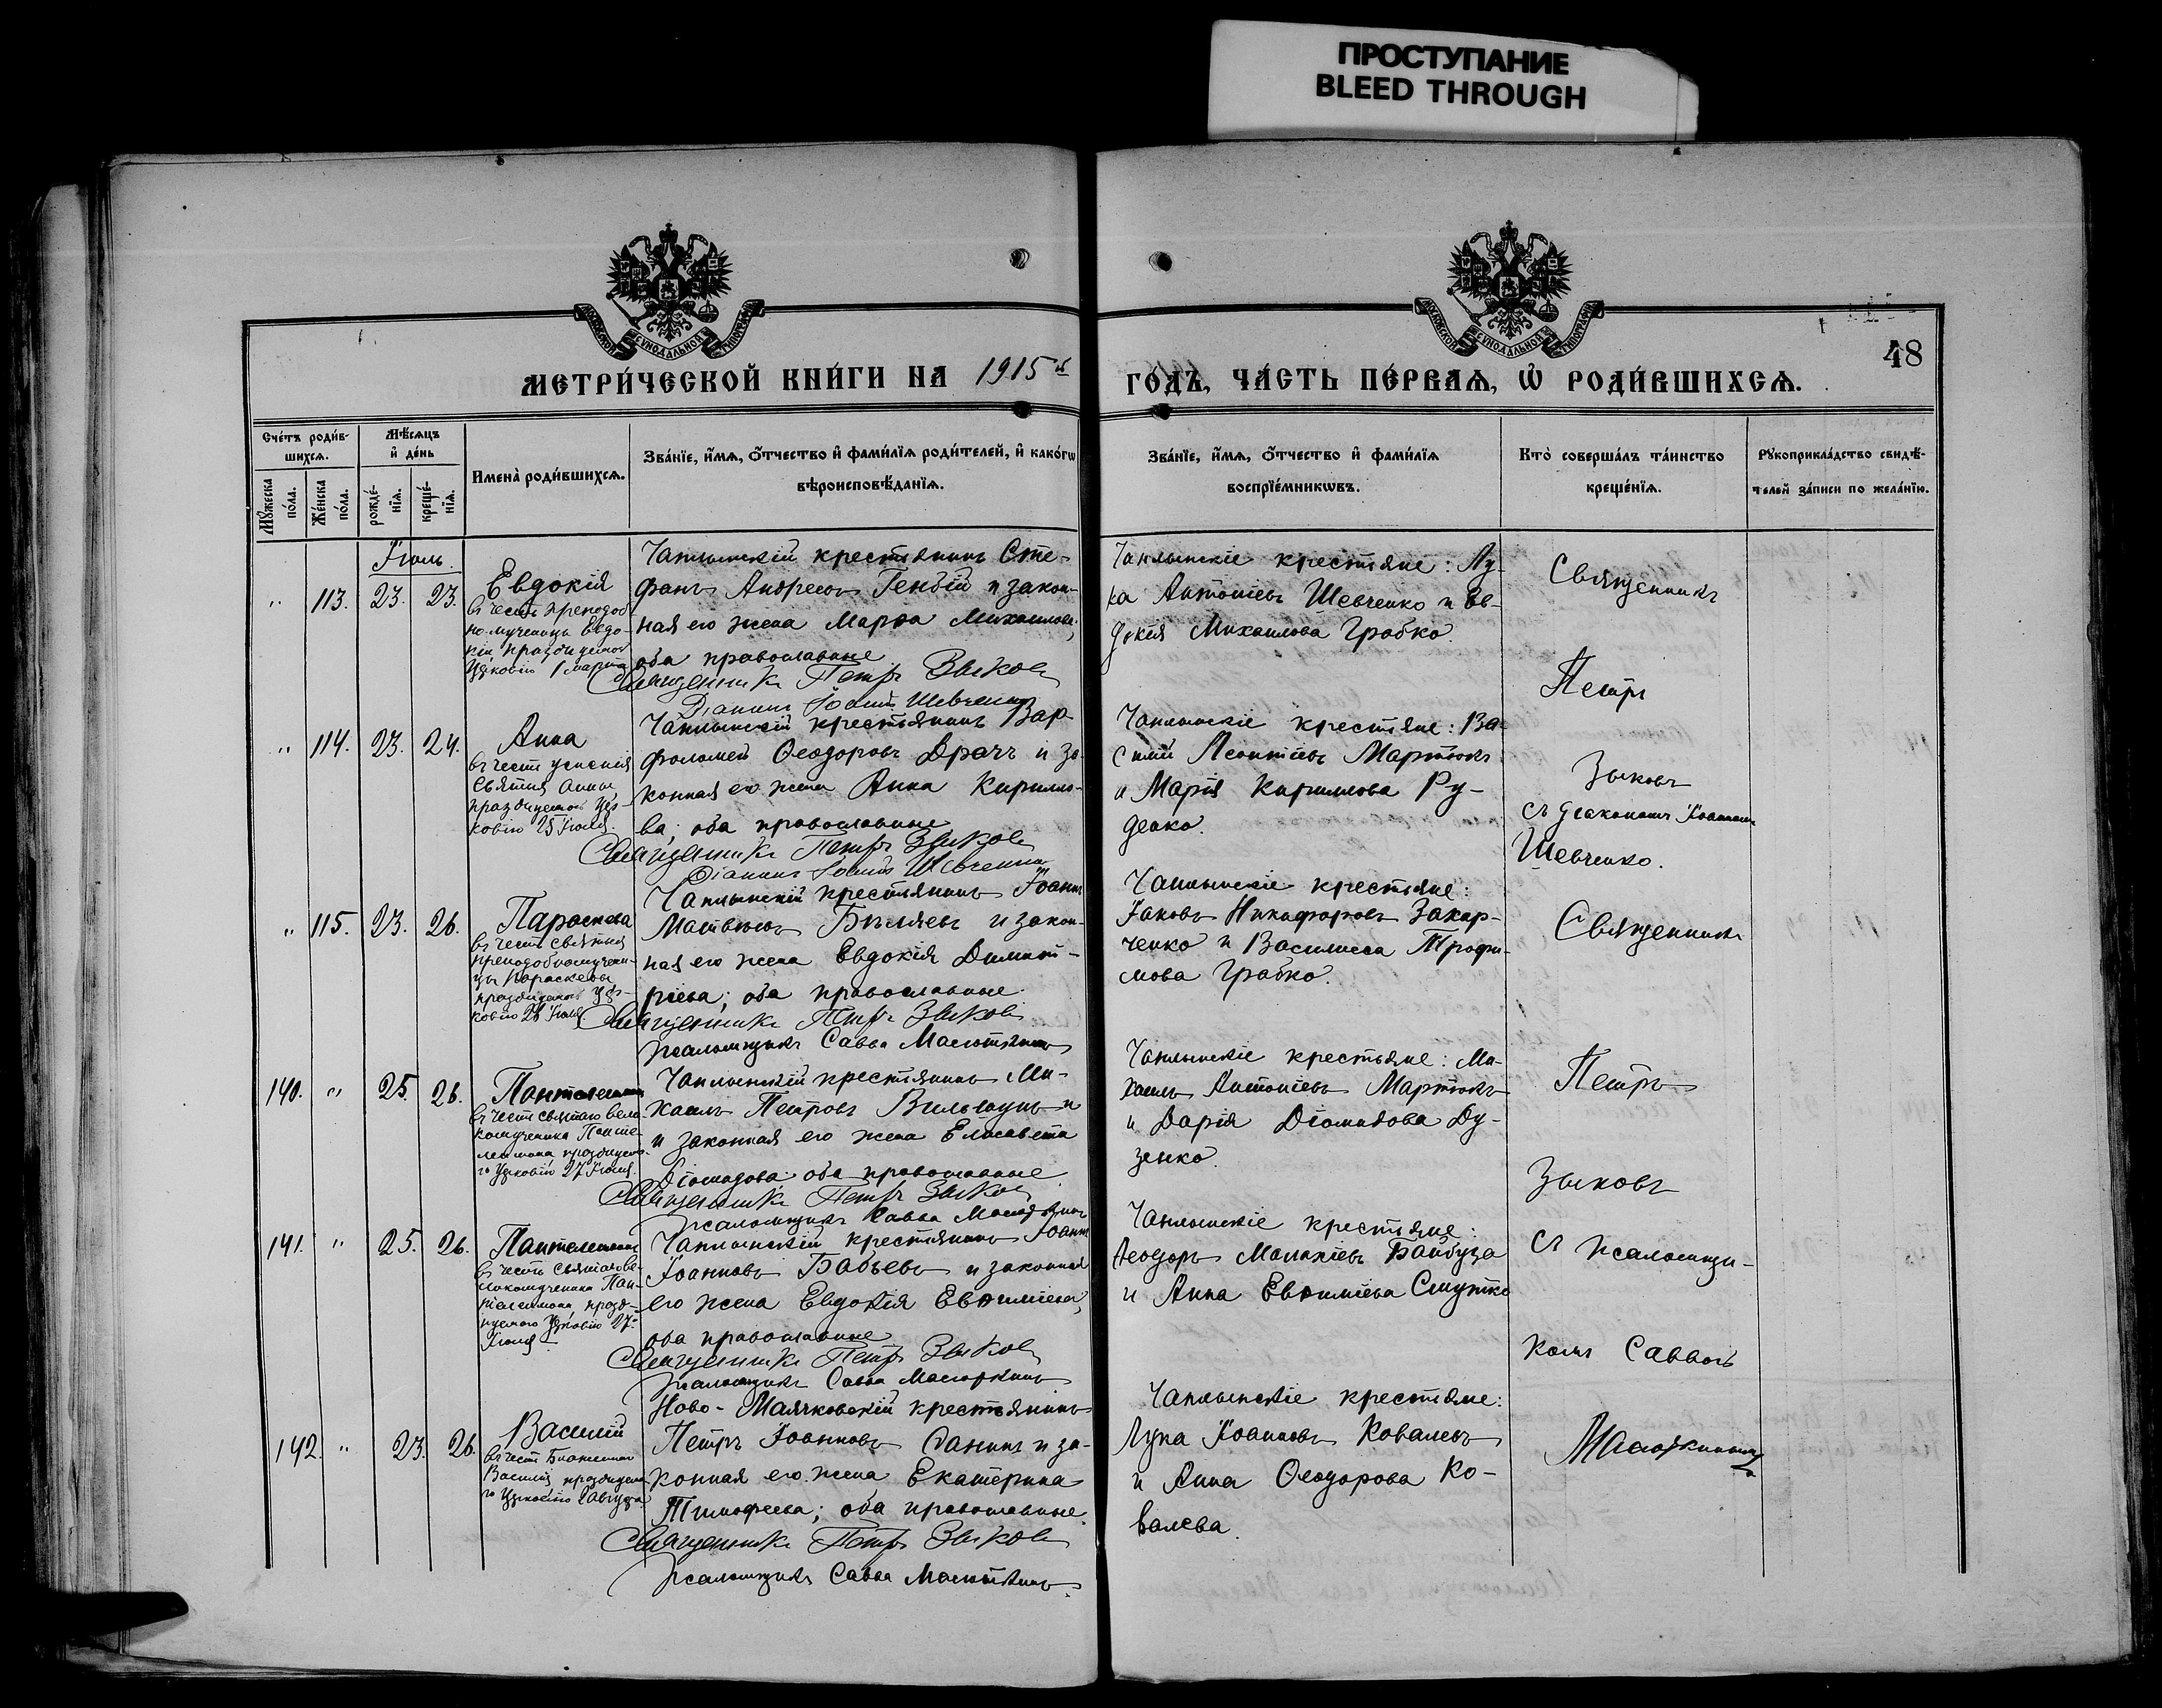 ПРОСТУПАНИЕ
BLEED THROUGH
МЕТРИ́ЧЕСКОЙ КНИ́ГИ НА 1915й ГОДЪ, ЧА́СТЬ ПЕ́РВАѦ, Ѿ РОДИ́ВШИХСѦ.
48
Сче́тъ роди́в-
шихсѧ.
Мꙋжеска по́ла.
Же́нска по́ла.
Мѣ́сѧцъ
и҆ де́нь
рожде́-
нїѧ.
креще́-
нїѧ.
Имена̀ роди́вшихсѧ.
Зва́нїе, и҆́мѧ, ѻ҆́тчество и҆ фами́лїѧ роди́телей, и҆ како́гѡ
вѣроисповѣ́данїѧ.
Зва́нїе, и҆́мѧ, ѻ҆́тчество и҆ фами́лїѧ
воспрїе́мникѡвъ.
Кто̀ соверша́лъ та́инство
креще́нїѧ.
Рꙋкоприкла́дство свидѣ́-
телей за́писи по жела́нїю.
Іюль.
" 113. 23. 23.
Евдокія
въ честь преподоб
но-мученицы Евдо-
кіи празднуемой
Церковію 1 марта
Чаплынскій крестьянинъ Сте-
фанъ Андреевъ Гендій и закон-
ная его жена Марѳа Михаилова,
оба православные
Священникъ Петръ Зыковъ
Діаконъ Іоаннъ Шевченко
Чаплынскіе крестьяне: Лу-
ка Антоніевъ Шевченко и Ев-
докія Михаилова Грабко.
Священникъ
Петръ
Зыковъ
съ діакономъ Іоанномъ
Шевченко.
" 114. 23. 24.
Анна
въ честь успенія
Святыя Анны,
празднуемой Цер-
ковію 25 Іюля.
Чаплынскій крестьянинъ Вар-
фоломей Ѳеодоровъ Драчъ и за-
конная его жена Анна Кирилло-
ва; оба православные
Священникъ Петръ Зыковъ
Діаконъ Іоаннъ Шевченко
Чаплынскіе крестьяне: Ва-
силій Леонтіевъ Мартюкъ
и Марія Кириллова Ру-
денко.
" 115. 23. 26.
Параскева
въ честь святыя
преподобномучени-
цы Параскевы
празднуемой Цер-
ковію 26 Іюля.
Чаплынскій крестьянинъ Іоаннъ
Матвѣевъ Бѣляевъ и закон-
ная его жена Евдокія Димит-
ріева; оба православные
Священникъ Петръ Зыковъ
Псаломщикъ Савва Масюткинъ
Чаплынскіе крестьяне:
Іаковъ Никифоровъ Захар-
ченко и Василиса Трофи-
мова Грабко.
Священникъ
Петръ
Зыковъ
съ псаломщи-
комъ Саввою
Масюткинымъ
140. " 25. 26.
Пантелеимонъ
въ честь святаго вели-
комученика Панте-
леимона, празднуема-
го Церковію 27 Іюля.
Чаплынскій крестьянинъ Ми-
хаилъ Петровъ и
и законная его жена Елисавета
Діомидова: оба православные
Священникъ Петръ Зыковъ
Псаломщикъ Савва Масюткинъ
Чаплынскіе крестьяне: Ми-
хаилъ Антоніевъ Мартюкъ
и Дарія Діомидова Ду-
зенко.
141. " 25. 26.
Пантелеимонъ
въ честь святаго ве-
ликомученика Пан-
телеимона, празд-
нуемаго Церковію 27-
Іюля
Чаплынскій крестьянинъ Іоаннъ
Іоанновъ Бабьевъ и законная
его жена Евдокія Евѳиміева,
оба православные
Священникъ Петръ Зыковъ
Псаломщикъ Савва Масюткинъ
Чаплынскіе крестьяне:
Ѳеодоръ Малахіевъ Байбуза
и Анна Евѳиміева Смутко
142. " 23. 26.
Василій
въ честь Блаженнаго
Василія празднуема-
го Церковію 2 Августа
Ново-Маячковскій крестьянинъ
Петръ Іоанновъ и за-
конная его жена Екатерина
Тимофеева; оба православные.
Священникъ Петръ Зыковъ
Псаломщикъ Савва Масюткинъ.
Чаплынскіе крестьяне:
Лука Іоанновъ Ковалевъ
и Анна Ѳеодорова Ко-
валева.